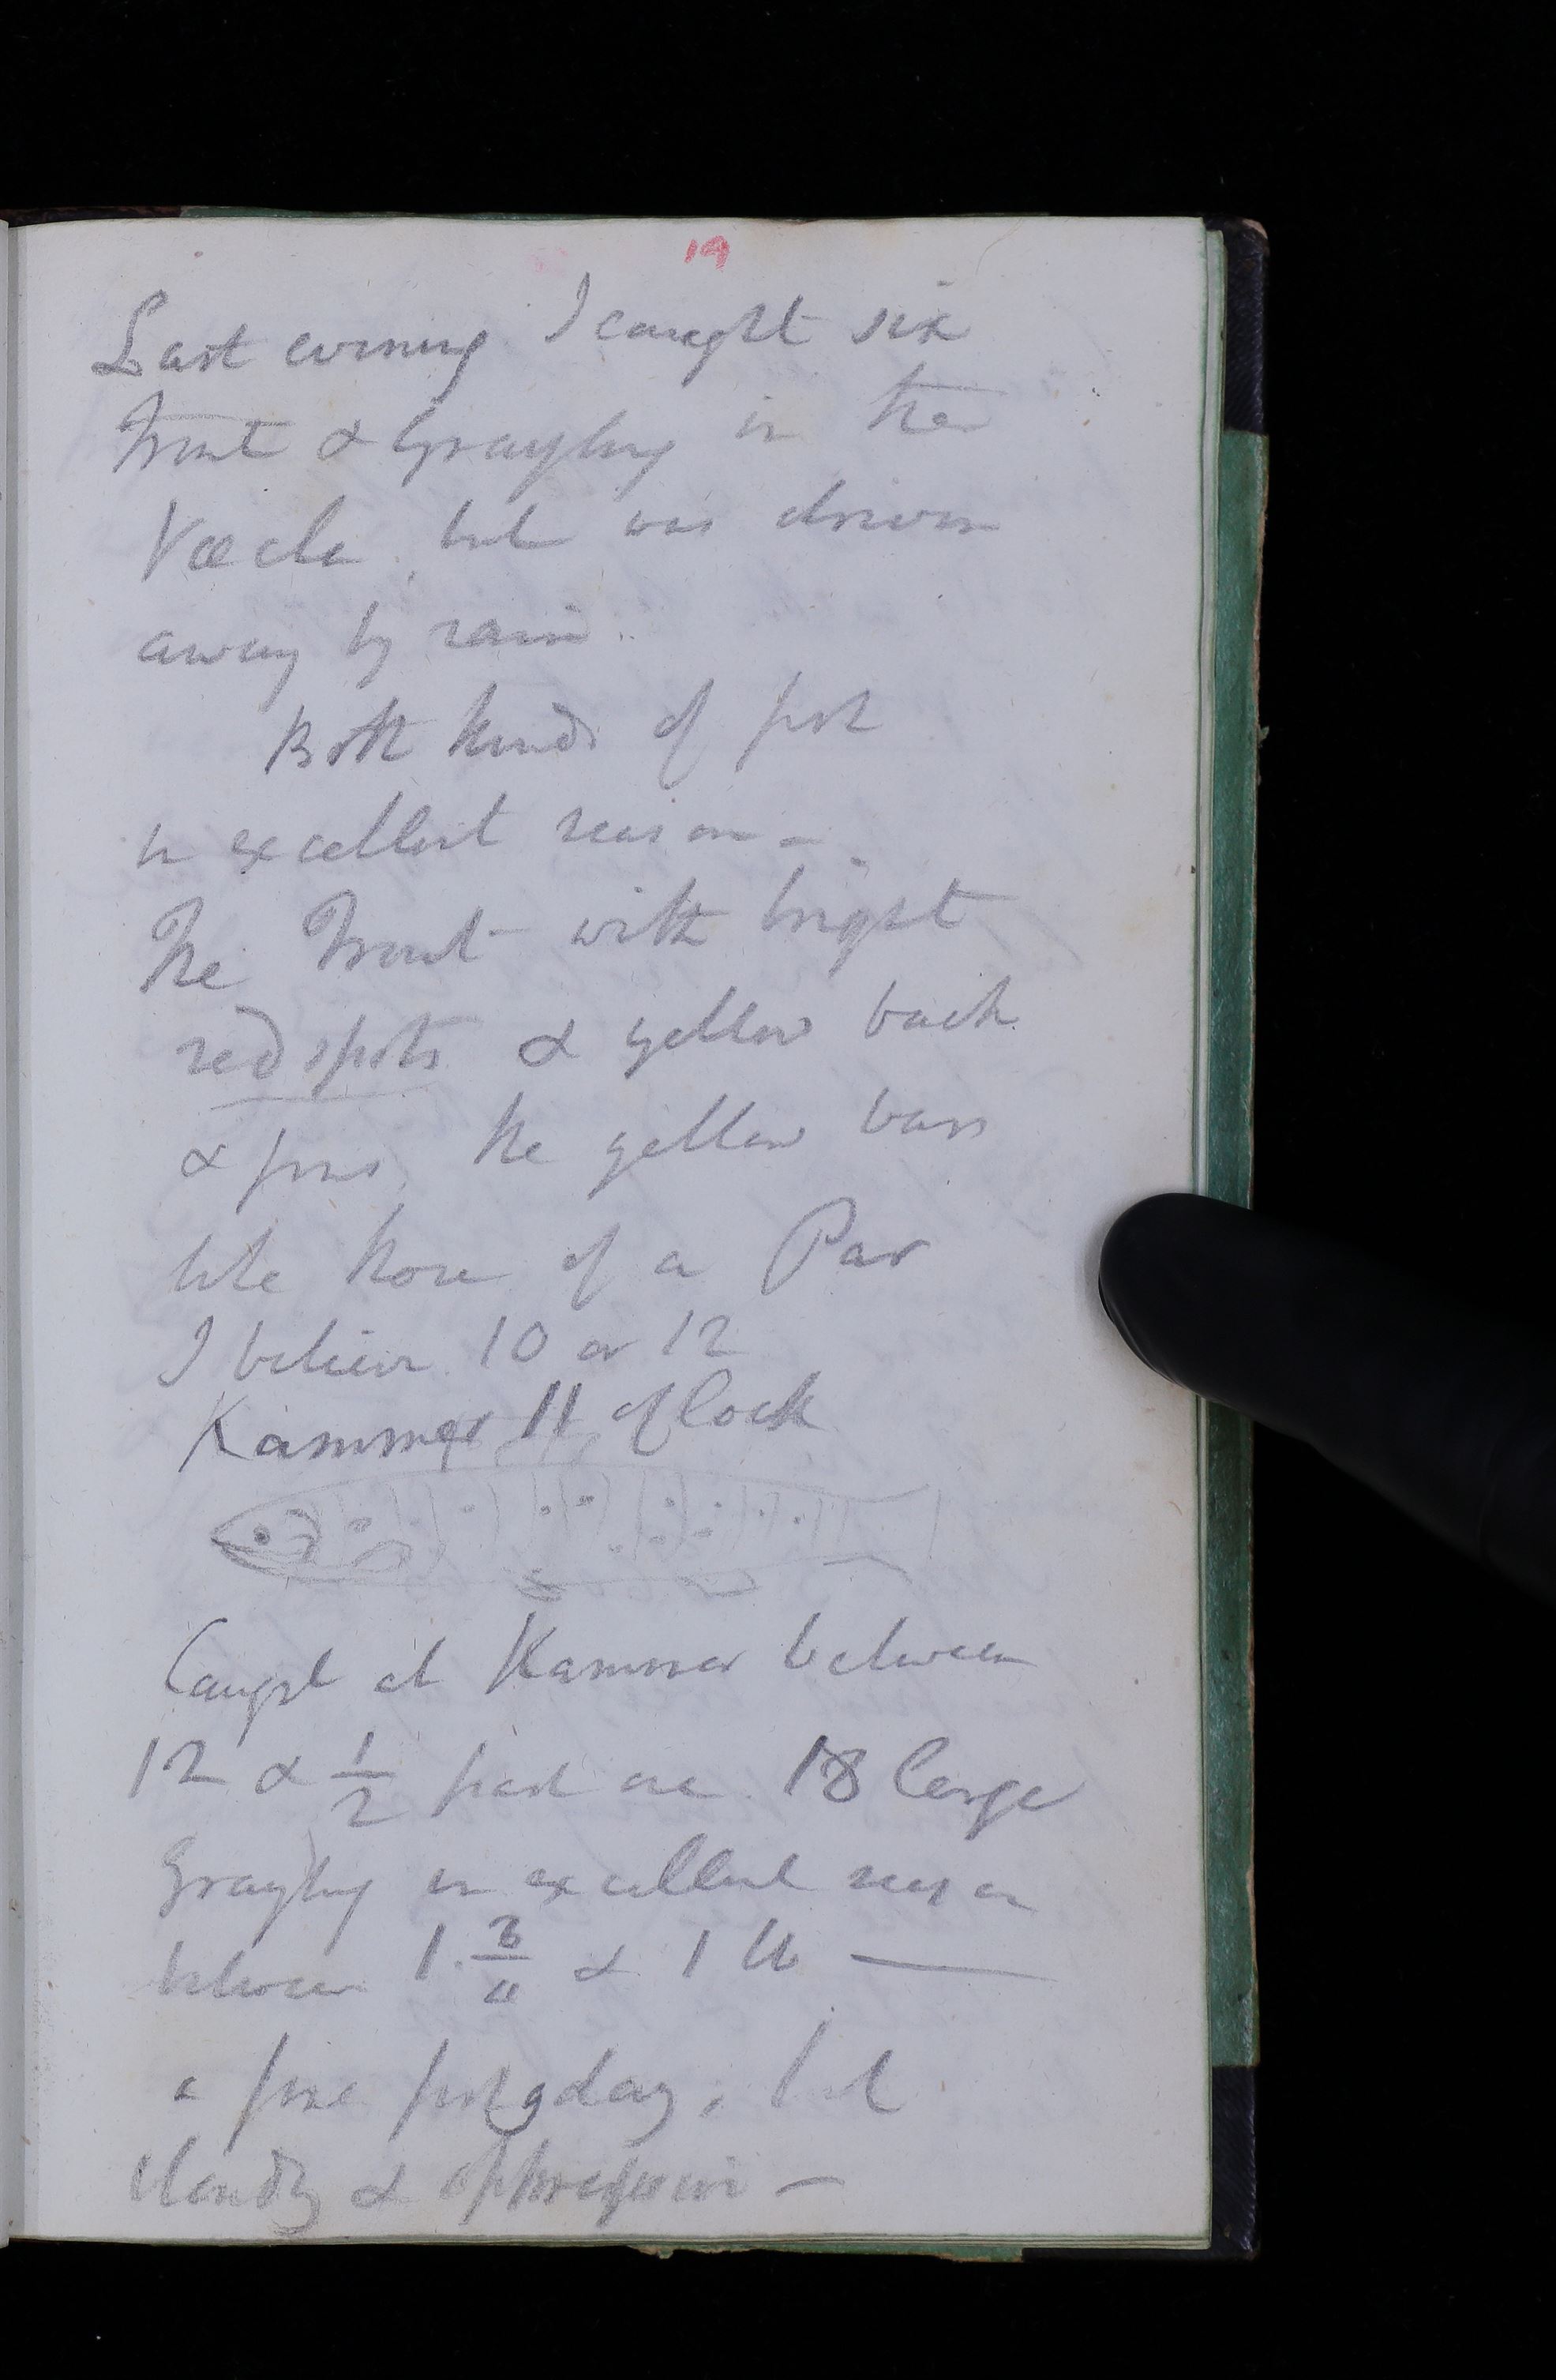 19
Last evening I caught six
Trout & Grayling in the
Vöcla, but was driven
away by rain.
Both kinds of fish
in excellent season -
The Trout with bright
red spots & yellow back
& fins, the yellow bars
like those of a Par
I believe 10 or 12
Kammer 11 of Clock
Caught at Kammer between
12 & 1/2 past one 18 large
Grayling in excellent season
between 1 3/4 & 1 lb —
a fine fishg day, but
cloudy & oppressive —